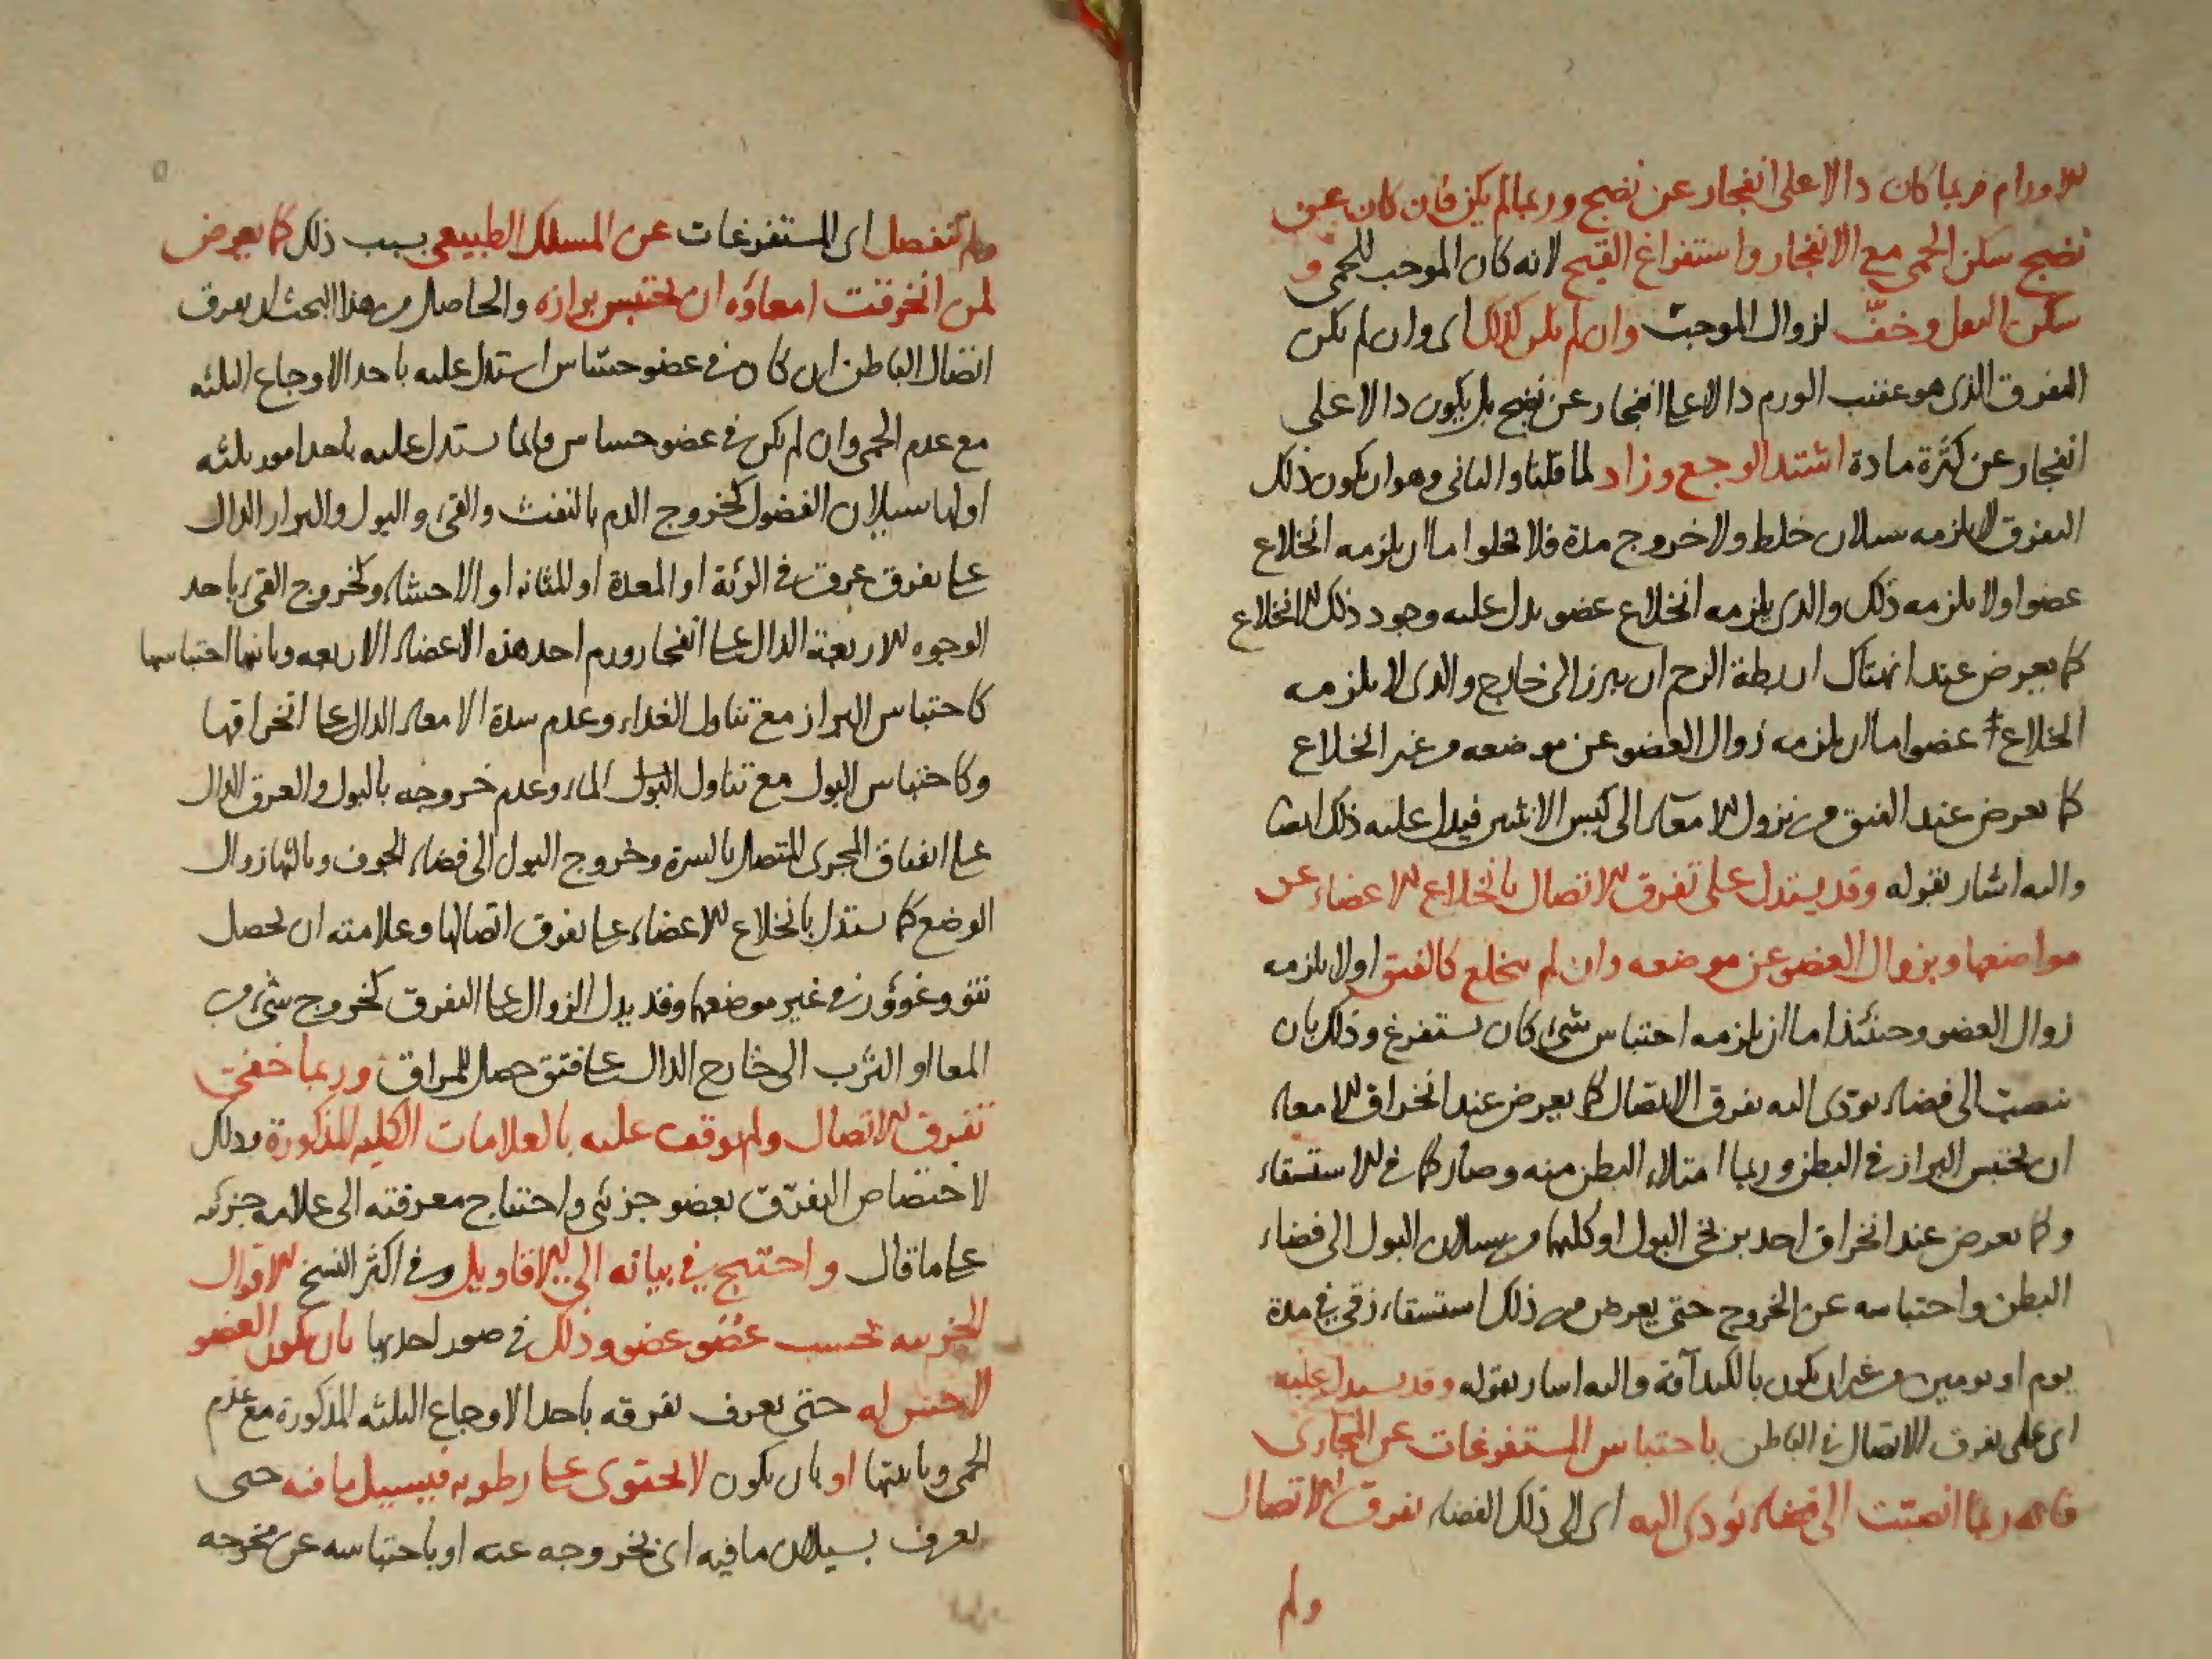 الاورام فربما كان دالا على انفجار عن نضج وربما لم يكن فان كان عن
نضج سكن الحمى مع الانفجار واستفراغ القيح لانه كان الموجب للحمى و
سكن الثقل وخفّ لزوال الموجب وان لم يكن كذلك اى وان لم يكن
التفرق الذى هو عقيب الورم دالا على انفجار عن نضج بل يكون دالا على
انفجار عن كثرة مادة اشتد الوجع وزاد لما قلنا والثانى وهو ان يكون ذلك
التفرق لا يلزمه سيلان خلط ولا خروج مدة فلا يخلوا ما ان يلزمه انخلاع
عضو اولا يلزمه ذلك والذى يلزمه انخلاع عضو يدل عليه وجود ذلك الانخلاع
كما يعرض عند انهتاك اربطة الرحم ان يبرز الى خارج والذى لا يلزمه
انخلاع عضو اما ان يلزمه زوال العضو عن موضعه من غير انخلاع
كما يعرض عند الفتق من نزول الامعاء الى كيس الانثيين فيدل عليه ذلك ايضا
واليه اشار بقوله وقد يستدل على تفرق الاتصال بانخلاع الاعضاء عن
مواضعها وبزوال العضو عن موضعه وان لم ينخلع كالفتق اولا يلزمه
زوال العضو وحينئذ اما ان يلزمه احتباس شئ كان يستفرغ وذلك بان
ينصب الى فضاء يؤدى اليه تفرق الاتصال كما يعرض عند انخراق الامعاء
ان يحتبس البراز فى البطن وربما امتلاء البطن منه وصار كما فى الاستسقاء
وكما يعرض عند انخراق احد بربخى البول او كليهما من سيلان البول الى فضاء
البطن واحتباسه عن الخروج حتى يعرض من ذلك استسقاء زقى فى مدة
يوم او يومين من غير ان يكون بالكبد آفة واليه اشار بقوله وقد يستدل عليه
اى على تفرق الاتصال فى الباطن باحتباس المستفرغات عن المجارى
فانه ربما انصبت الى فضاء يؤدى اليه اى الى ذلك الفضاء تفرق الاتصال
ولم
ولم تنفصل اى المستفرغات عن المسلك الطبيعى بسبب ذلك كما يعرض
لمن انخرقت امعاؤه ان يحتبس برازه والحاصل من هذا البحث ان تفرق
اتصال الباطن ان كان فى عضو حساس استدل عليه باحد الاوجاع الثلثه
مع عدم الحمى وان لم يكن فى عضو حساس فانما يستدل عليه باحد امور ثلثه
اولها سيلان الفضول كخروج الدم بالنفث والقئ والبول والبراز الدال
على تفرق عرق فى الرئة او المعدة او المثانه او الاحشاء وكخروج القئ باحد
الوجوه الاربعة الدال على انفجار ورم احد هذه الاعضاء الاربعه وثانيها احتباسها
كاحتباس البراز مع تناول الغذاء وعدم سدة الامعاء الدال على انخراقها
وكاحتباس البول مع تناول البول الماء وعدم خروجه بالبول والعرق الدال
على انفتاق المجرى المتصل بالسرة وخروج البول الى فضاء الجوف وثالثها زوال
الوضع كما يستدل بانخلاع الاعضاء على تفرق اتصالها وعلامته ان يحصل
نتو وغوؤر فى غير موضعها وقد يدل الزوال على التفرق كخروج شئ من
المعا او الثرب الى خارج الدال على فتق حصل للمراق وربما خفى
تفرق الاتصال ولم يوقف عليه بالعلامات الكليه المذكورة وذلك
لاختصاص التفرّق بعضو جزئى واحتياج معرفته الى علامه جزئيه
على ما قال واحتيج فى بيانه الى الاقاويل وفى اكثر النسخ الاقوال
الجزئيه بحسب عضو عضو وذلك فى صور احديها بان يكون العضو
لا حس له حتى يعرف تفرقه باحد الاوجاع الثلثه المذكورة مع عدم
الحمى وثانيتها او بان يكون لا يحتوى على رطوبه فيسيل ما فيه حتى
يعرف بسيلان ما فيه اى بخروجه عنه او باحتباسه عن مخرجه